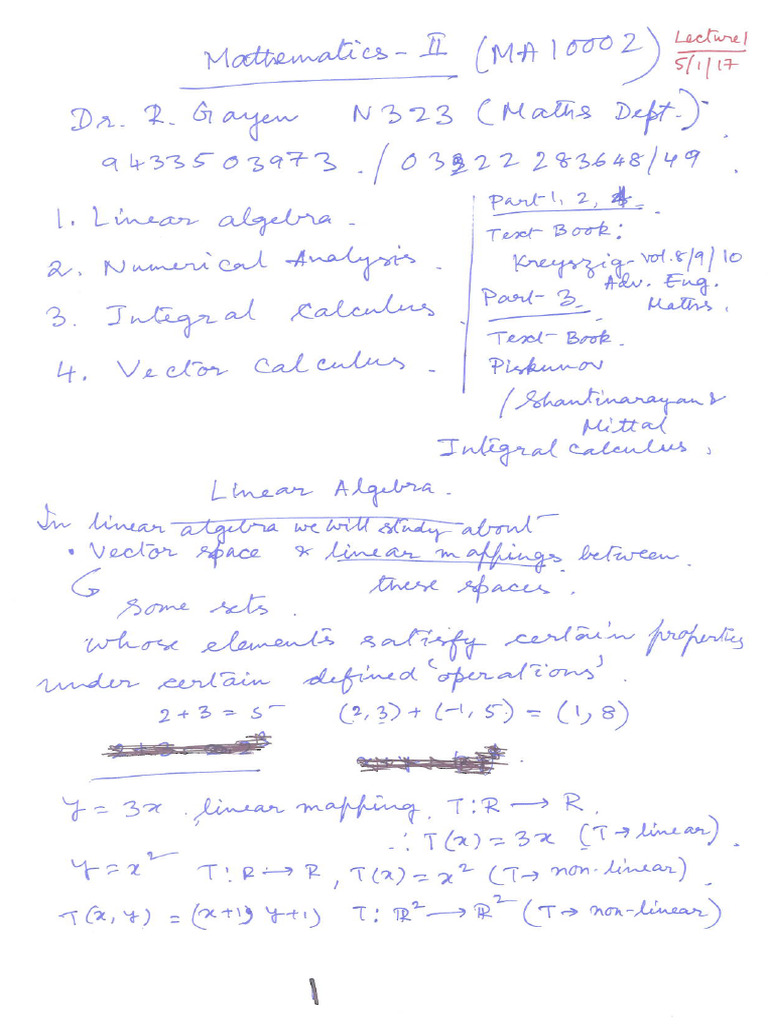 Mathematics - II (MA10002)
Lecture 1
5/1/17
Dr. R. Gayen N323 (Maths Dept.)
9433503973. / 03222 283648/49
1. Linear algebra.
2. Numerical Analysis.
3. Integral Calculus.
4. Vector Calculus.
Part 1, 2, 4.
Text Book:
Kreyszig - vol. 8/9/10
Adv. Eng.
Maths.
Part-3
Text-Book.
Piskunov
/Shantinarayan &
Mittal
Integral calculus.
Linear Algebra.
In linear algebra we will study about
• Vector space & linear mappings between
these spaces.
some sets.
whose elements satisfy certain properties
under certain defined 'operations'.
2+3 = 5 (2, 3) + (-1, 5) = (1, 8)
y = 3x, linear mapping. T: R → R.
∴ T(x) = 3x (T → linear).
y = x² T: R → R, T(x) = x² (T → non-linear).
T(x, y) = (x+1, y+1) T: ℝ² → ℝ² (T → non-linear)
1